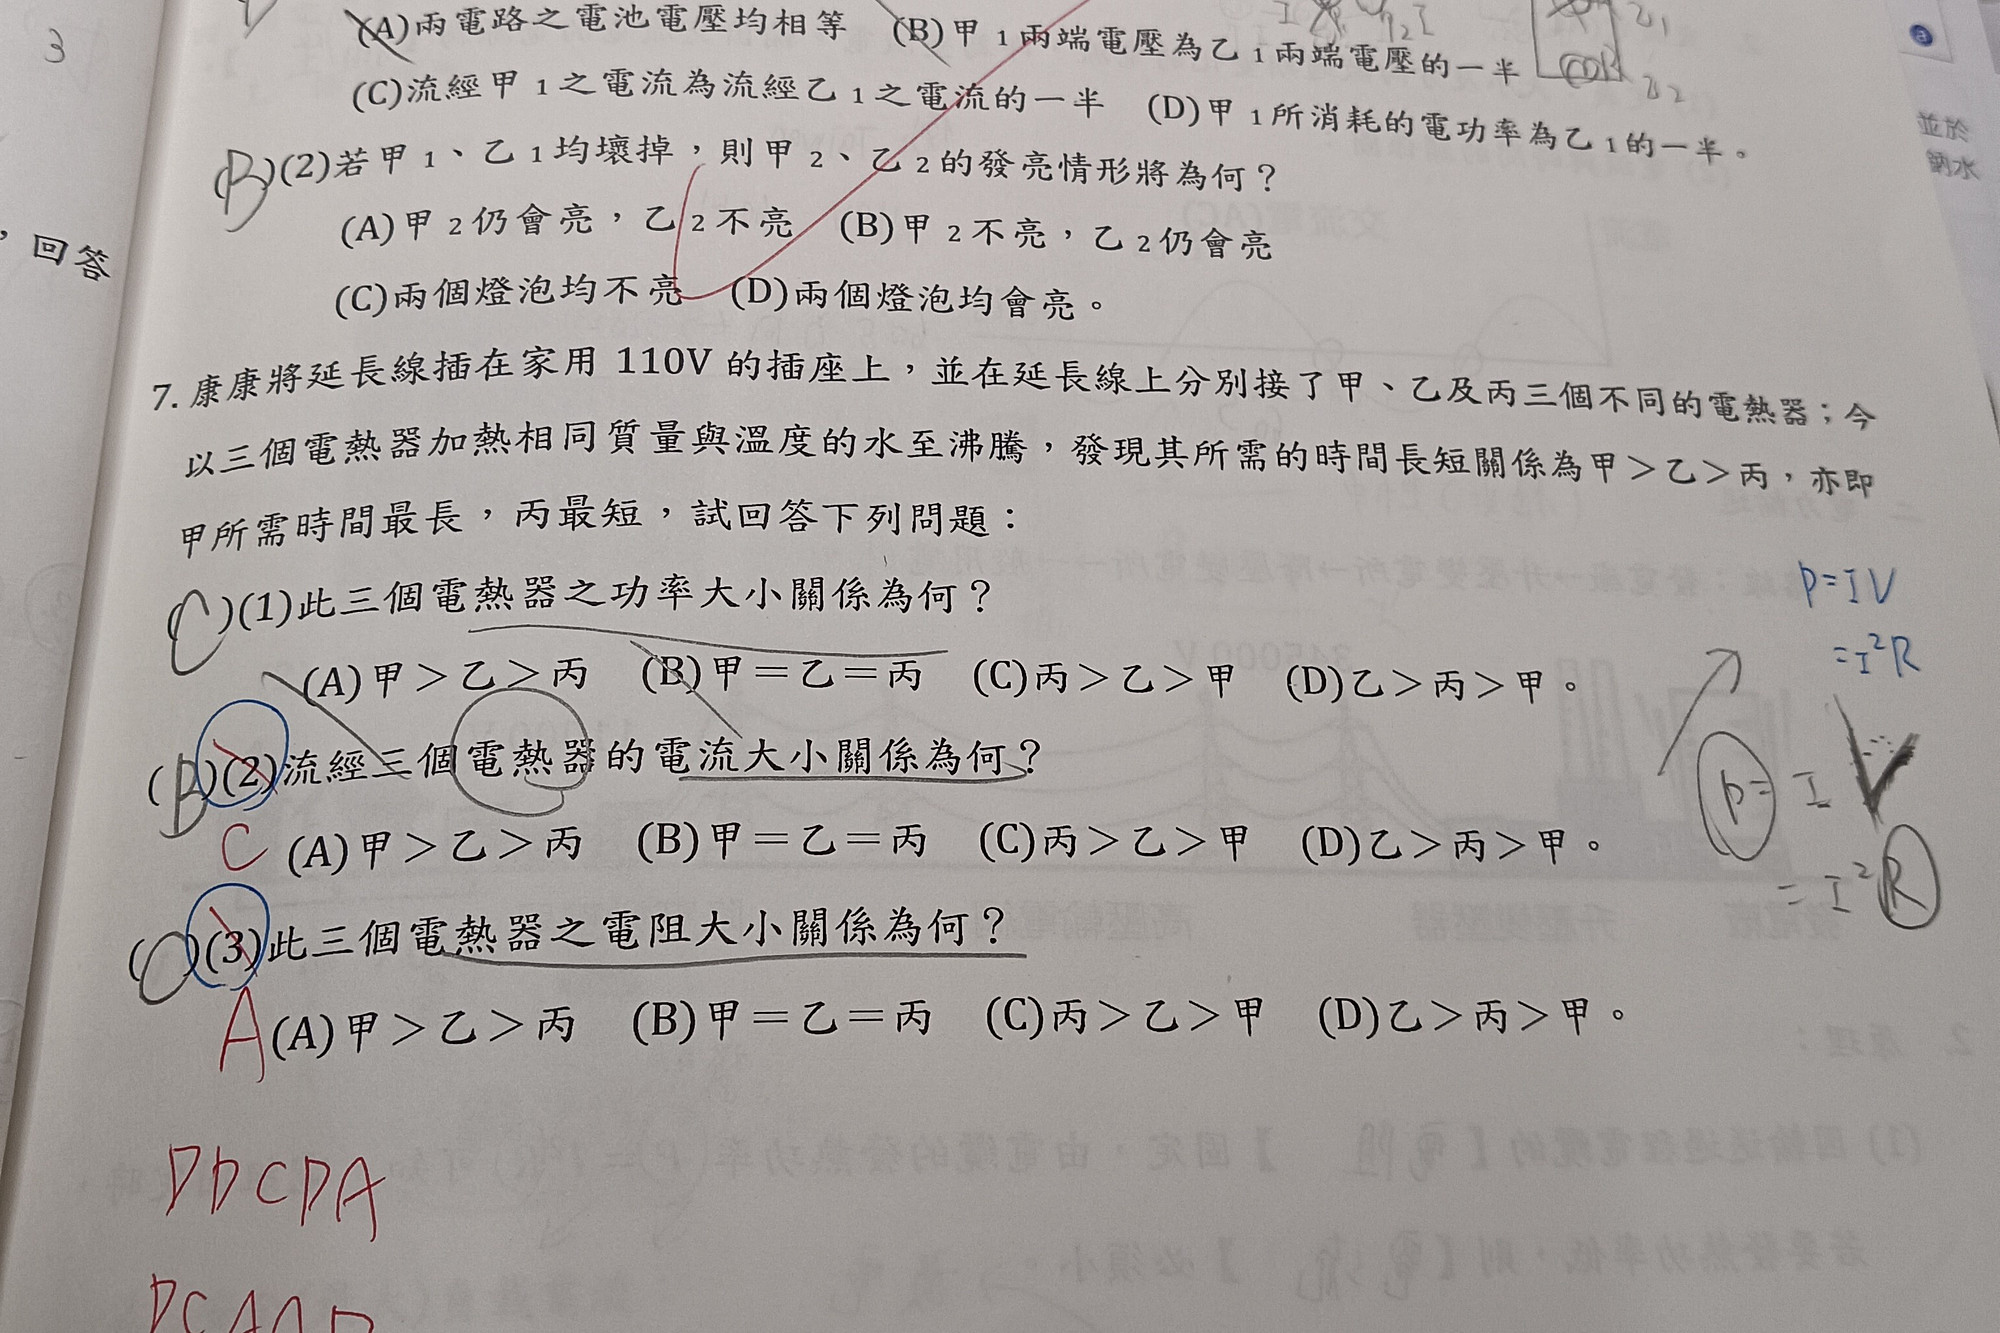 3
(A)兩電路之電池電壓均相等 (B)甲1兩端電壓為乙1兩端電壓的一半
(C)流經甲1之電流為流經乙1之電流的一半 (D)甲1所消耗的電功率為乙1的一半。
(B)(2)若甲1、乙1均壞掉，則甲2、乙2的發亮情形將為何？
(A)甲2仍會亮，乙2不亮 (B)甲2不亮，乙2仍會亮
(C)兩個燈泡均不亮 (D)兩個燈泡均會亮。
，回答
並於
7. 康康將延長線插在家用 110V 的插座上，並在延長線上分別接了甲、乙及丙三個不同的電熱器；今
以三個電熱器加熱相同質量與溫度的水至沸騰，發現其所需的時間長短關係為甲＞乙＞丙，亦即
甲所需時間最長，丙最短，試回答下列問題：
(C)(1)此三個電熱器之功率大小關係為何？
(A)甲＞乙＞丙 (B)甲＝乙＝丙 (C)丙＞乙＞甲 (D)乙＞丙＞甲。
(B)(2)流經三個電熱器的電流大小關係為何？
C (A)甲＞乙＞丙 (B)甲＝乙＝丙 (C)丙＞乙＞甲 (D)乙＞丙＞甲。
(C)(3)此三個電熱器之電阻大小關係為何？
A (A)甲＞乙＞丙 (B)甲＝乙＝丙 (C)丙＞乙＞甲 (D)乙＞丙＞甲。
P=IV
=I²R
P= I V
= I²R
DDCDA